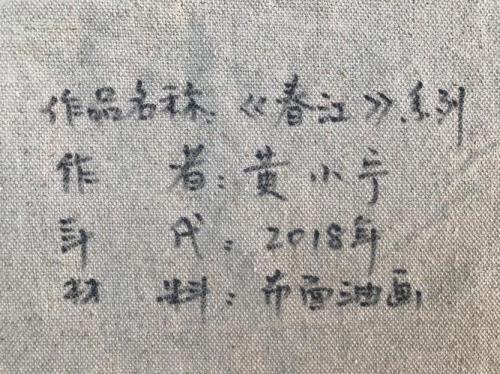 作品名称：《春江》系列
作 者：黄小宁
年 代：2018年
材 料：布面油画